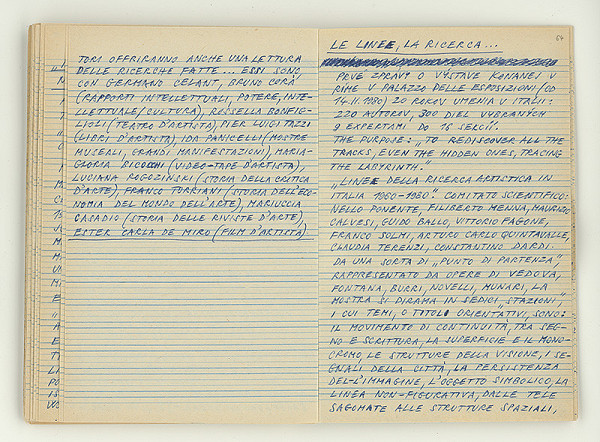 TORI OFFRIRANNO ANCHE UNA LETTURA
DELLE RICERCHE FATTE... ESSI SONO
CON GERMANO CELANT, BRUNO CORÀ
(RAPPORTI INTELLETTUALI, POTERE, INTE-
LLETTUALE/CULTURA), ROSSELLA BONFIG-
LIOLI (TEATRO D'ARTISTA), PIER LUIGI TAZZI
(LIBRI D'ARTISTA), IDA PANICELLI (MOSTRE
MUSEALI, GRANDI MANIFESTAZIONI), MARIA-
GLORIA BICOCCHI (VIDEO-TAPE D'ARTISTA),
LUCIANA ROGOZINSKI (STORIA DELLA CRITICA
D'ARTE), FRANCO TORRIANI (STORIA DELL'ECO-
NOMIA DEL MONDO DELL'ARTE), MARIUCCIA
CASADIO (STORIA DELLE RIVISTE D'ARTE)
ESTER CARLA DE MIRO (FILM D'ARTISTA).
64
LE LINEE, LA RICERCA...
PRVÉ ZPRÁVY O VÝSTAVE KONANEJ V
RIME V PALAZZO DELLE ESPOSIZIONI (OD
14.11.1980) 20 ROKOV UMENIA V ITALII:
220 AUTOROV, 300 DIEL VYBRANÝCH
9 EXPERTAMI DO 16 SEKCIÍ.
THE PURPOSE: „TO REDISCOVER ALL THE
TRACKS, EVEN THE HIDDEN ONES, TRACING
THE LABYRINTH."
„LINEE DELLA RICERCA ARTISTICA IN
ITALIA 1960-1980". COMITATO SCIENTIFICO:
NELLO PONENTE, FILIBERTO MENNA, MAURIZIO
CALVESI, GUIDO BALLO, VITTORIO FAGONE,
FRANCO SOLMI, ARTURO CARLO QUINTAVALLE,
CLAUDIA TERENZI, CONSTANTINO DARDI.
DA UNA SORTA DI „PUNTO DI PARTENZA",
RAPPRESENTATO DA OPERE DI VEDOVA,
FONTANA, BURRI, NOVELLI, MUNARI, LA
MOSTRA SI DIRAMA IN SEDICI „STAZIONI",
I CUI TEMI, O TITOLI ORIENTATIVI, SONO:
IL MOVIMENTO DI CONTINUITÀ, TRA SEG-
NO E SCRITTURA, LA SUPERFICIE E IL MONO-
CROMO, LE STRUTTURE DELLA VISIONE, I SE-
GNALI DELLA CITTÀ, LA PERSISTENZA
DEL-L'IMMAGINE, L'OGGETTO SIMBOLICO, LA
LINEA NON-FIGURATIVA, DALLE TELE
SAGOMATE ALLE STRUTTURE SPAZIALI,